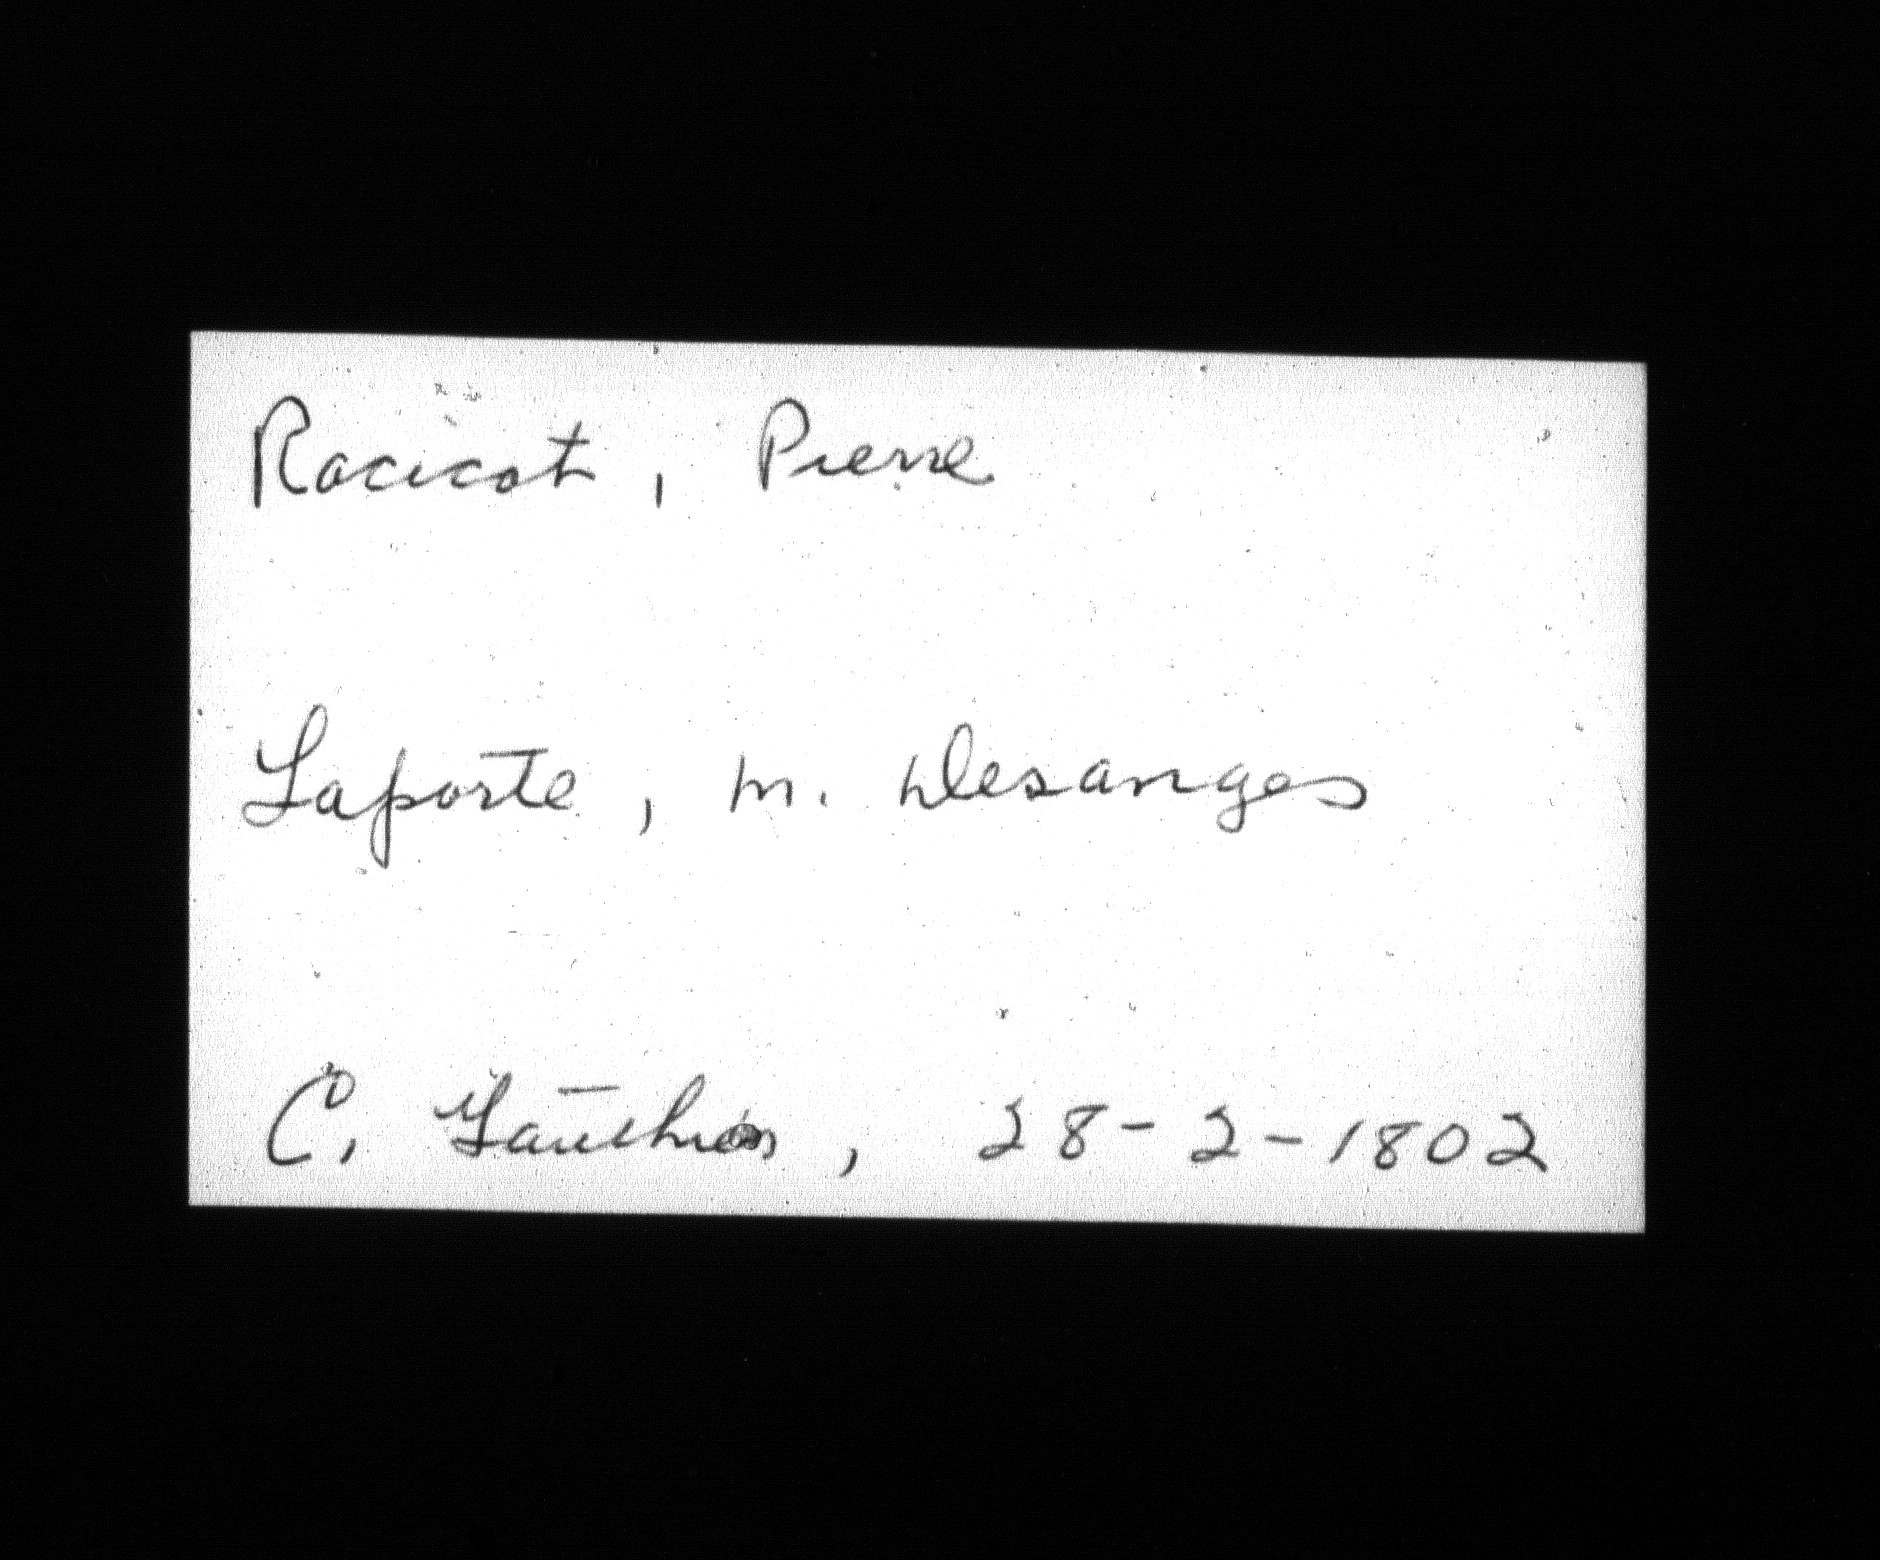 Racicot, Pierre
Laporte, m. Desanges
C. Gauthier, 28-2-1802